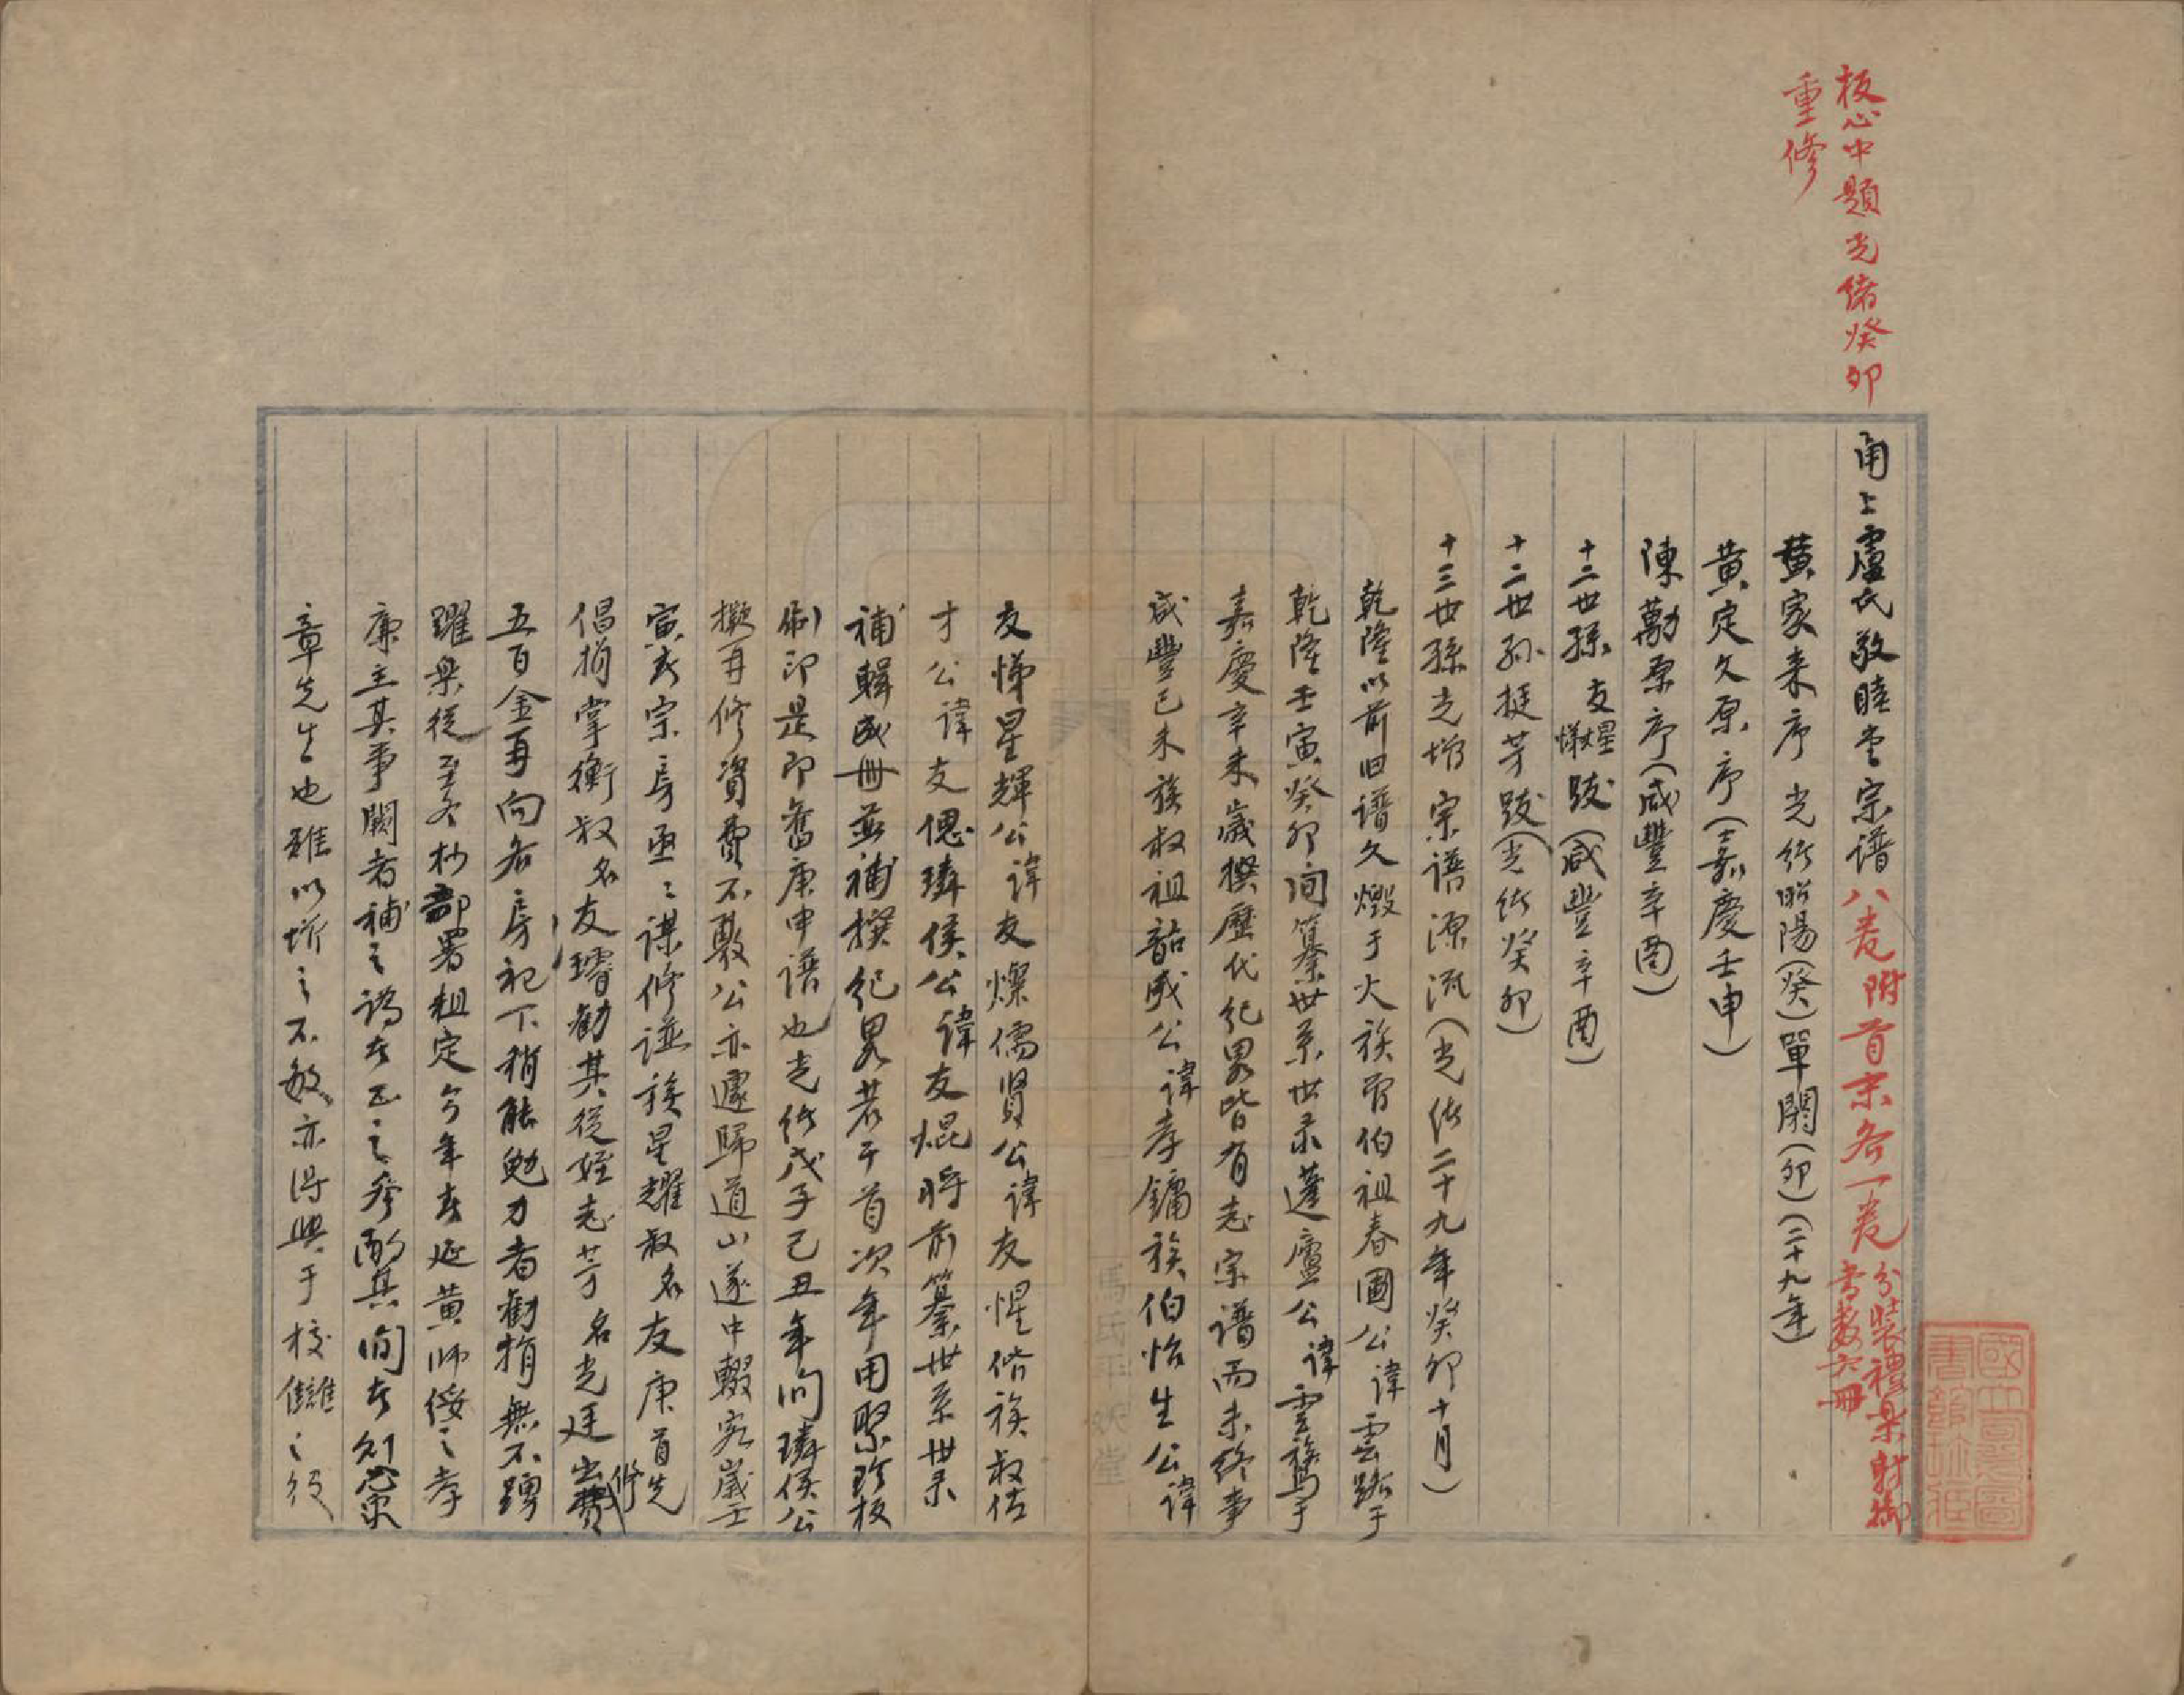 板心中題光绪癸卯
重修
甬上盧氏敬睦堂宗谱八卷附首末各一卷分裝禮樂射御書数六冊
黄家来序光绪昭陽(癸)單閼(卯)(二十九年)
黄定文原序(嘉慶壬申)
陳勱原序(咸豐辛酉)
十二世孫友焜跋(咸豐辛酉)
十二世孙挺芳跋(光绪癸卯)
十三世孫光增宗譜源流(光绪二十九年癸卯十月)
乾隆以前旧譜久燬于火族曾伯祖春圃公諱雲路于
乾隆壬寅癸卯间纂世系世录蘧廬公諱雲騖于
嘉慶辛未歲撰歷代纪畧皆有志宗谱而未终事
咸豐己未族叔祖韶成公諱孝鏞族伯怡生公諱
友悌星輝公諱友燦儒賢公諱友惺偕族叔佐
才公諱友偲璘侯公諱友焜將前纂世系世录
補輯成冊並補撰纪畧若干首次年用聚珍板
刷印是即舊庚申譜也光绪戊子己丑年间璘侯公
擬再修資費不敷公亦遽歸道山遂中輟客歲壬
寅家宗房亟亟谋修譜族星耀叔名友庚首先
倡捐掌衡叔名友璿勸其從姪志芳名光廷出修費
五百金再向各房祀下稍能勉力者勸捐無不踴
躍樂從至冬杪部署粗定今年春延黄師绥之孝
廉主其事闕者補之譌者正之参酌其间者忽棠
章先生也雖以增之不敏亦得與于校讎之役